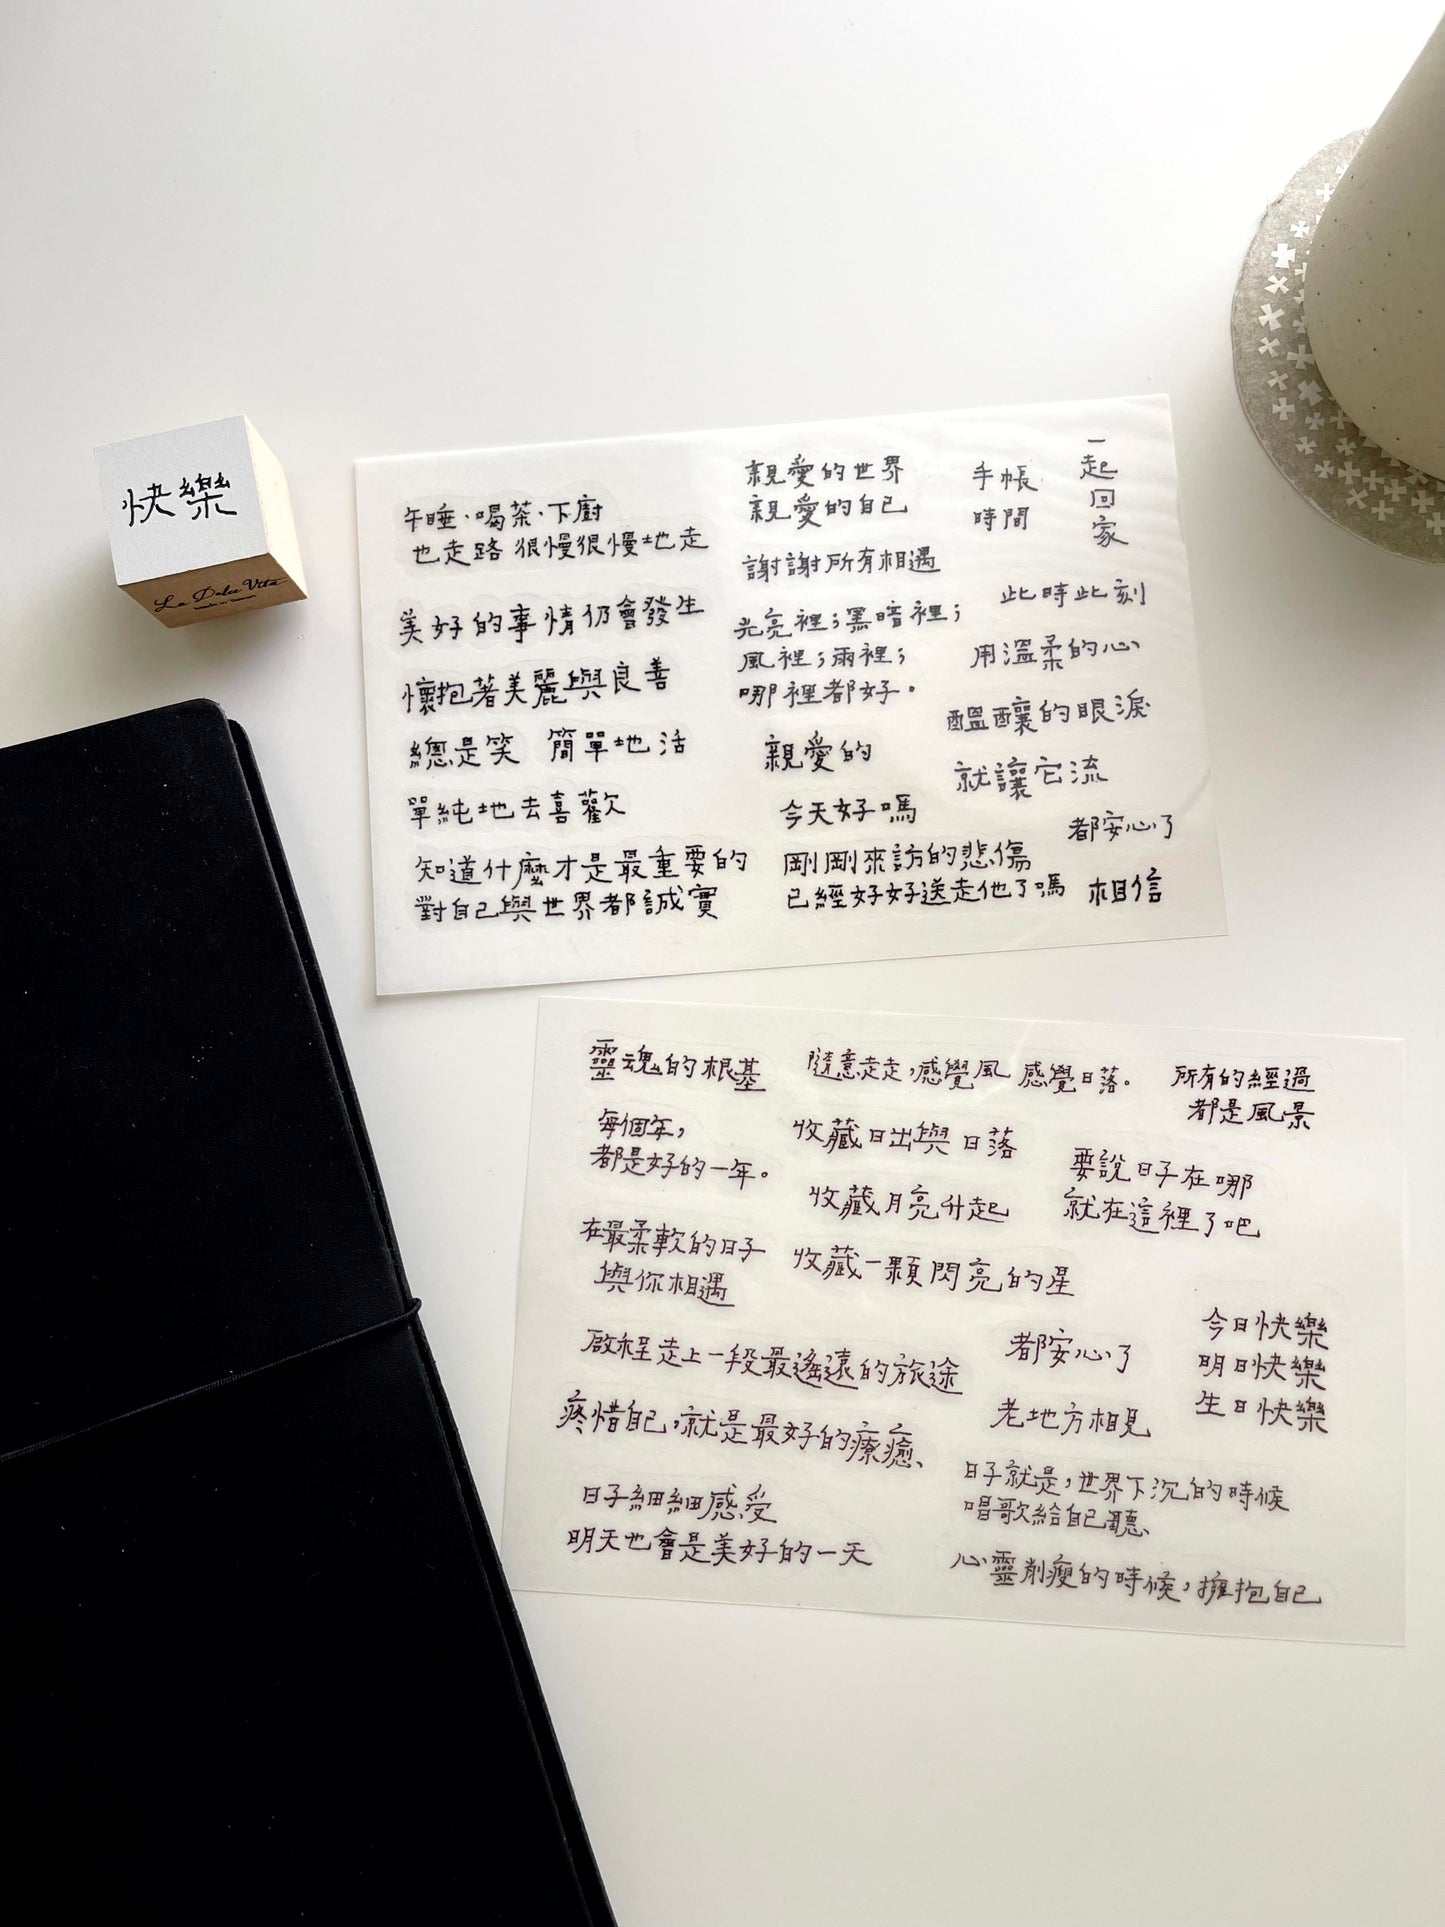 快樂
La Dolce Vita
午睡、喝茶、下廚
也走路 很慢很慢地走
美好的事情仍會發生
懷抱著美麗與良善
總是笑 簡單地活
單純地去喜歡
知道什麼才是最重要的
對自己與世界都誠實
親愛的世界
親愛的自己
謝謝所有相遇
光亮裡；黑暗裡；
風裡；雨裡；
哪裡都好。
親愛的
今天好嗎
剛剛來訪的悲傷
已經好好送走他了嗎
手帳
時間
一起回家
此時此刻
用溫柔的心
醞釀的眼淚
就讓它流
都安心了
相信
靈魂的根基
每個年，
都是好的一年。
在最柔軟的日子
與你相遇
啟程走上一段最遙遠的旅途
疼惜自己，就是最好的療癒、
日子細細感受
明天也會是美好的一天
隨意走走，感覺風 感覺日落。
收藏日出與日落
收藏月亮升起
收藏一顆閃亮的星
都安心了
老地方相見
日子就是，世界下沉的時候
唱歌給自己聽、
心靈削瘦的時候，擁抱自己
所有的經過
都是風景
要說日子在哪
就在這裡了吧
今日快樂
明日快樂
生日快樂